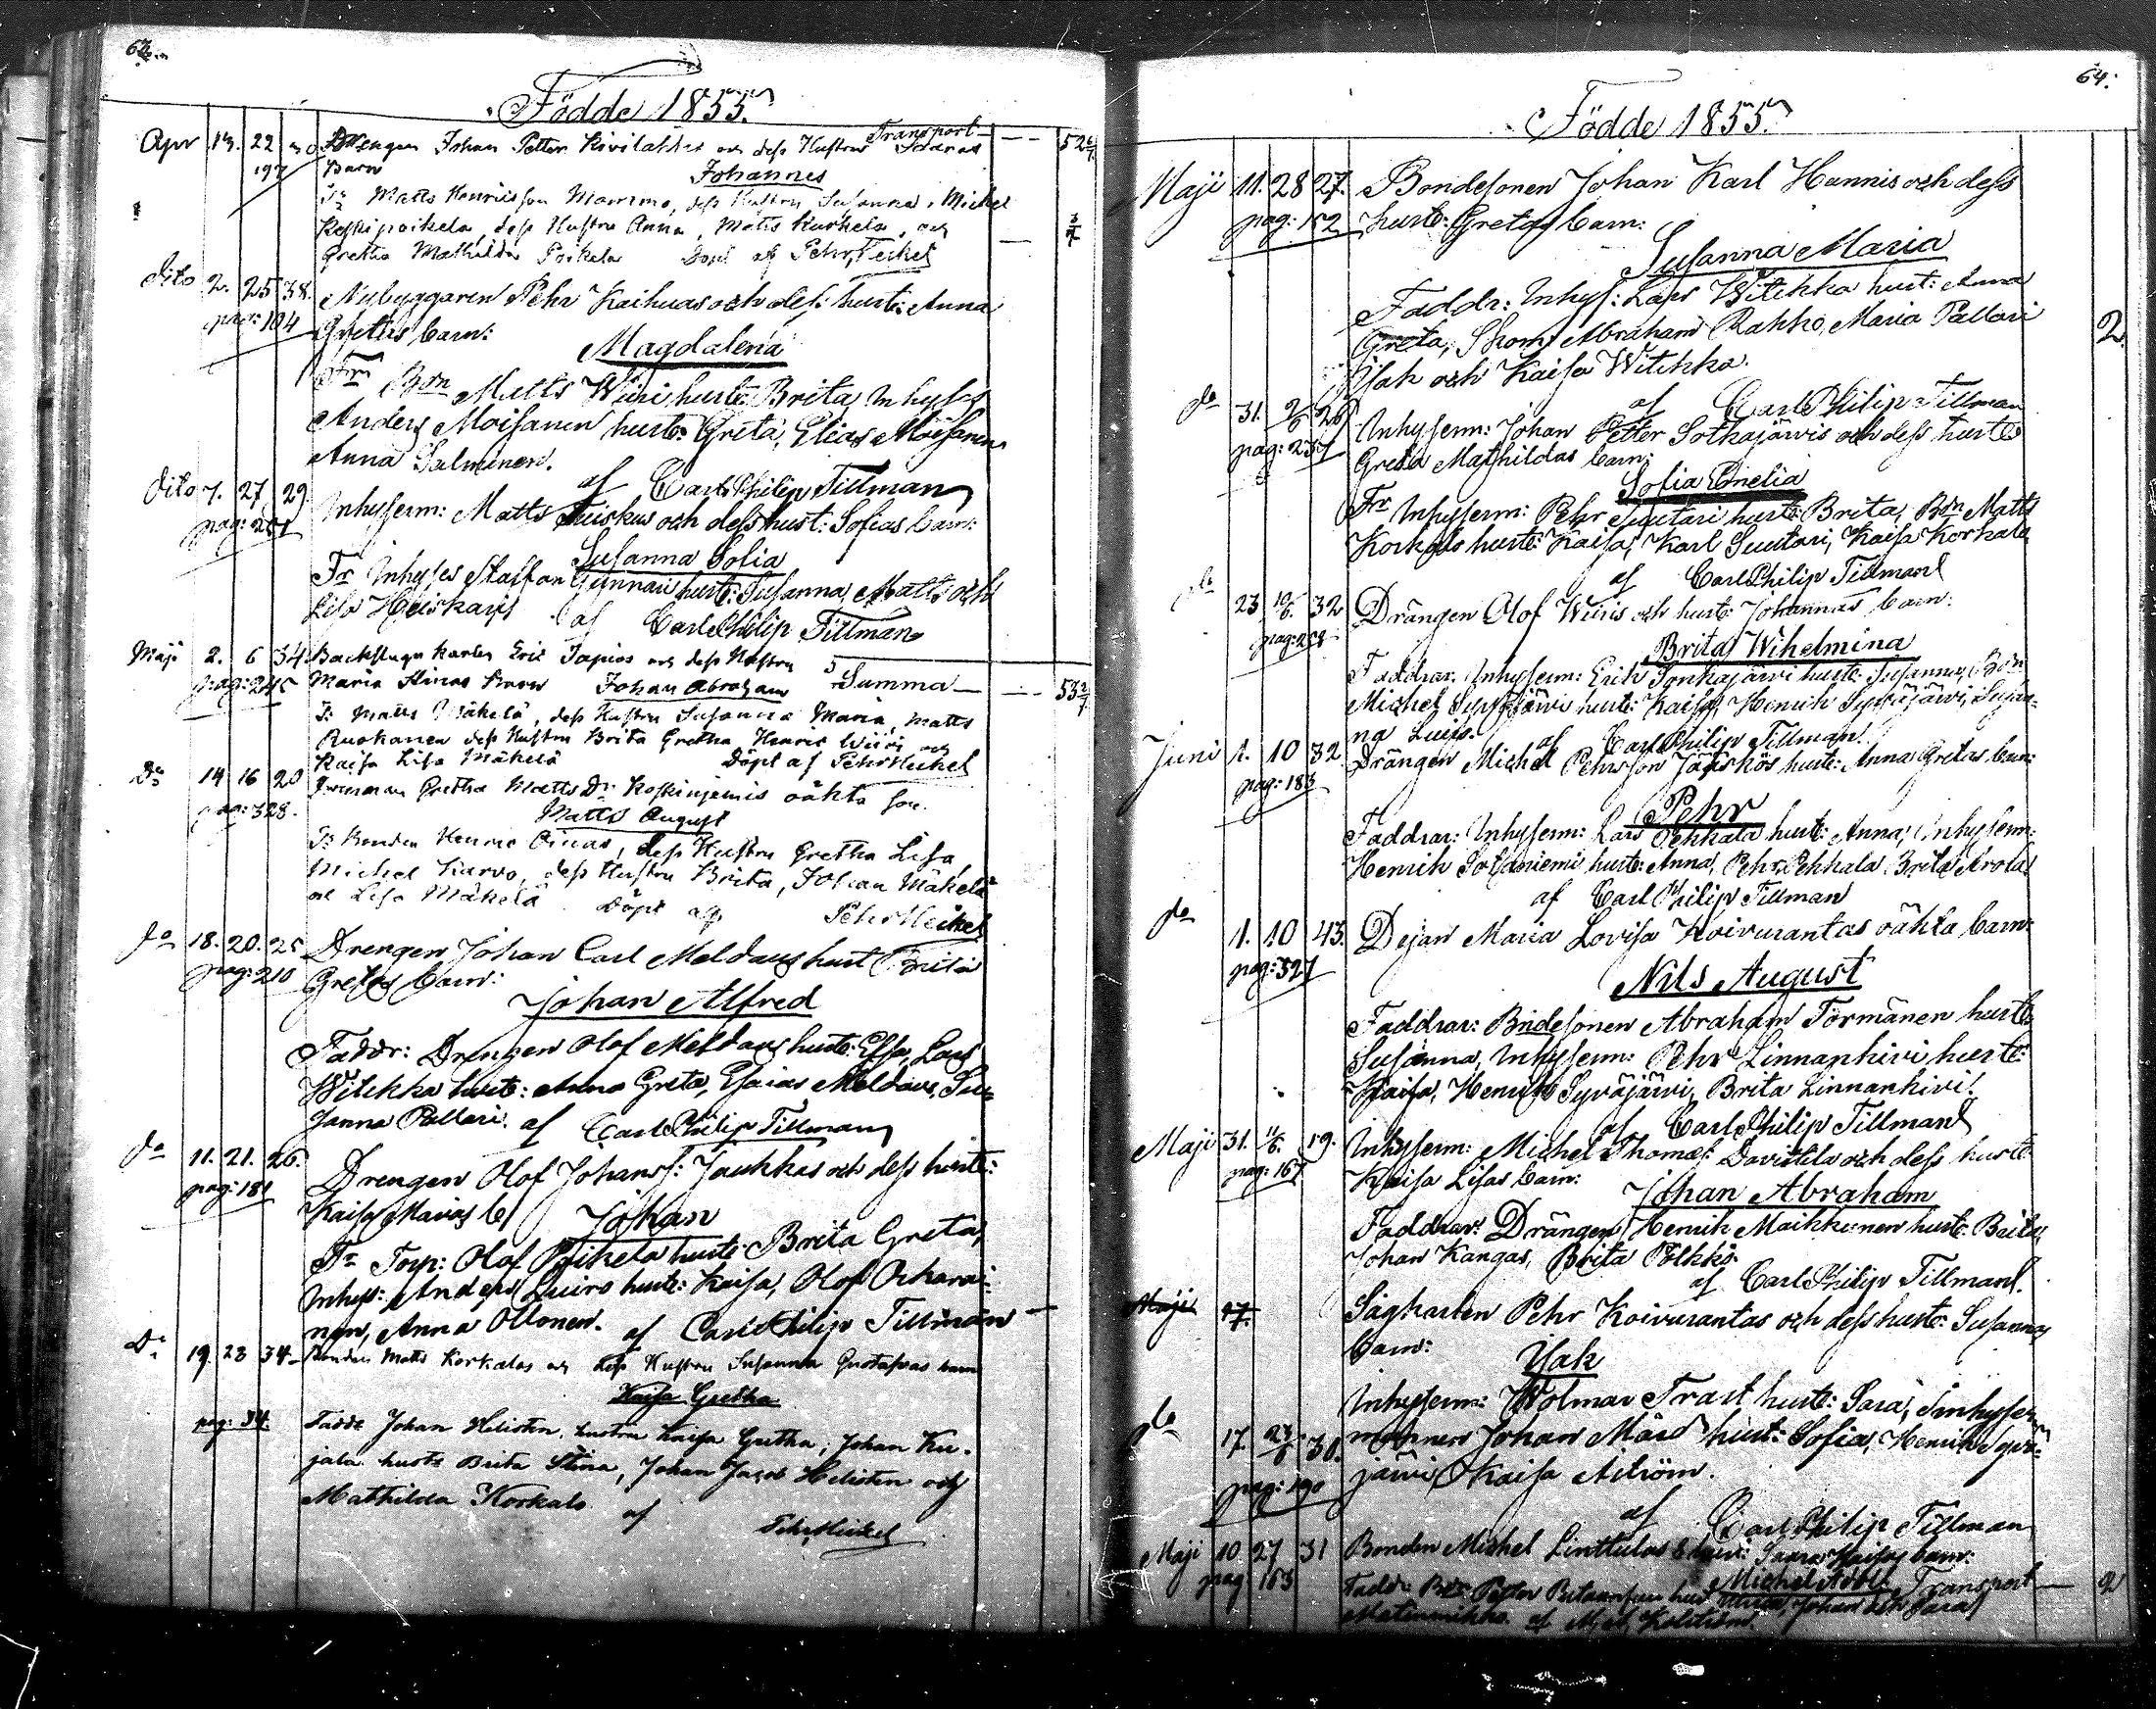 63.
Födde 1855.
Transport — — 52 6/7.
Apr 13. 22 30 Drengen Johan Petter Kivilahtis och dess Hustru Saaras
197 Barn Johannes
Fr Matts Henriksson Mammo, dess Hustru Susanna, Michel
Koskipoikela, dess Hustru Anna, Matts Kurkela, och
Gretha Mathilda Poikela Döpt af Pehr Heikel
dito 2. 25 38. Nybyggaren Pehr Kaihuas och dess hust: Anna
pag: 184 Gretas barn:
Magdalena
Frr Bon Matts Wiiri hust: Brita, Inhyses
Anders Moisanen hust: Greta, Elias Moisanen
Anna Salminen.
af Carl Philip Tillman
dito 7. 27 29. Inhysesm: Matts Huiskus och dess hust: Sofias barn:
pag: 251
Susanna Sofia
Fr Inhyses Staffan Gunnari hust: Susanna, Matts och
Lisa Heiskari af Carl Philip Tillman
Maji 2. 6 34. Backstugu karlen Eric Tapios och dess Hustru
pag: 245 Maria Stinas barn Johan Abraham Summa — — 53 2/7
Fr Matts Mäkelä, dess Hustru Susanna Maria, Matts
Ruokanen dess Hustru Brita Gretha, Henric Wiiri och
Kaisa Lisa Mäkelä Döpt af Pehr Heikel
Do 14 16 20 Qvinnan Gretha Matts Dr Koskiniemis oäkta son.
pag: 328.
Matts August
Fr Bonden Henric Oinas, dess Hustru Gretha Lisa,
Michel Karvo, dess Hustru Brita, Johan Mäkelä
och Lisa Mäkelä Döpt af Pehr Heikel
do 18. 20. 25 Drengen Johan Carl Meldaus hust Brita
pag: 210 Gretas barn:
Johan Alfred
Faddr: Drengen Olof Meldaus hust: Elsa, Lars
Witikka hust: Anna Greta, Esaias Meldaus, Su-
sanna Pallari. af Carl Philip Tillman
do 11. 21. 26. Drengen Olof Johanss: Jaukkas och dess hust:
pag: 181 Kaisa Marias b/ Johan
Fr Torp: Olof Poikela hust: Brita Greta,
Inhys: Anders Luiro hust: Kaisa, Olof Ockarai-
nen, Anna Ollonen. af Carl Philip Tillman
Do 19. 23 34 Bonden Matts Korkalas och dess Hustru Susanna Gustafvas barn
Kaisa Gretha
pag: 34. Faddr Johan Helistén, hustru Kaisa Gretha, Johan Ku-
jala hust: Brita Stina, Johan Jacob Helistén och
Mathilda Korkalo af
Pehr Heikel
64.
Födde 1855.
Maji 11. 28 27. Bondesonen Johan Karl Hannis och dess
pag: 152 hust: Gretas barn:
Susanna Maria
Faddr: Inhys: Lars Witikka hust: Anna
Greta, Skom: Abraham Rahko, Maria Pallari 2
Isak och Kaisa Witikka.
af Carl Philip Tillman
do 31. 2/6 26 Inhysesm: Johan Petter Sotkajärvis och dess hust:
pag: 257 Greta Mathildas barn:
Sofia Ornelia
Fr Inhysesm: Pehr Suutari hust: Brita, Bon Matts
Korkalo hust: Kaisa, Karl Suutari, Kaisa Korkalo
af Carl Philip Tillman
do 23 10/6. 32 Drängen Olof Wiiris och hust: Johannas barn:
pag: 258
Brita Wilhelmina
Faddrar: Inhysesm: Erik Sonkajärvi hust: Susanna, Bon
Michel Syväjärvi hust: Kaisa, Henrik Syväjärvi, Susan-
na Luiro. af Carl Philip Tillman
Juni 1. 10 32. Drängen Michel Pehrsson Jääskös hust: Anna Gretas barn:
pag: 183
Pehr
Faddrar: Inhysesm: Lars Pekkala hust: Anna, Inhysesm:
Henrik Sotaniemi hust: Anna, Pehr Pekkala, Brita Arola
af Carl Philip Tillman
do 1. 10 43. Dejan Maria Lovisa Koivurantas oäkta barn:
pag: 327
Nils August
Faddrar: Bondesonen Abraham Törmänen hust:
Susanna, Inhysesm: Pehr Linnankivi hust:
Kaisa, Henrik Syväjärvi, Brita Linnankivi.
af Carl Philip Tillman
Maji 31. 11/6. 19. Inhysesm: Michel Thomas: Davittila och dess hust:
pag: 167 Kaisa Lisas barn: Johan Abraham
Faddrar: Drängen Henrik Maikkunen hust: Brita,
Johan Kangas, Brita Pölkkö.
af Carl Philip Tillman.
Maji 17. Sågkarlen Pehr Koivurantas och dess hust: Susannas
barn: Isak
Inhysesm: Wolmar Trast hust: Sara, Inhyses-
do 17. 23/6 30. mannen Johan Mård hust: Sofia, Henrik Syvä-
pag: 190 järvi, Kaisa Aström.
af Carl Philip Tillman
Maji 10 27 31 Bonden Michel Linttulas & hust: Saara Kaisas barn:
pag 163 Michel Adolf Transport — 2
Faddr: Bon Petter hust Johan och Sara
Matinmikko. af